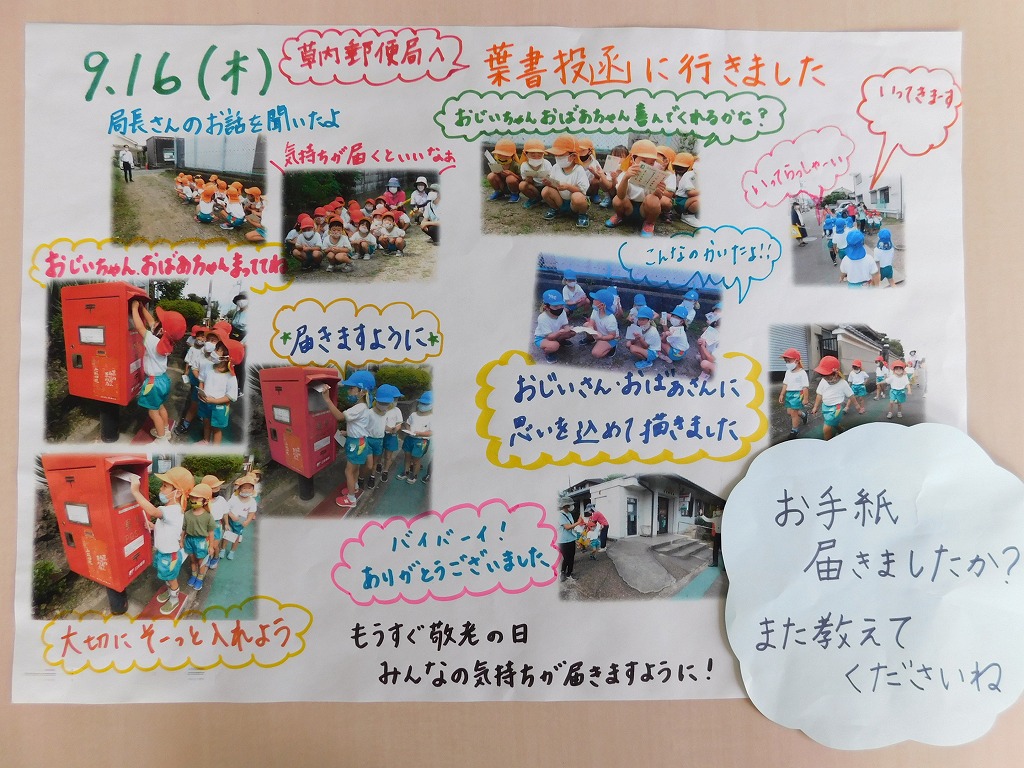 9.16(木)
草内郵便局へ
葉書投函に行きました
局長さんのお話を聞いたよ
おじいちゃんおばあちゃん喜んでくれるかな?
いってきまーす
気持ちが届くといいなぁ
いってらっしゃーい
おじいちゃん、おばあちゃんまっててね
こんなのかいたよ!!
届きますように
おじいさん・おばあさんに
思いを込めて描きました
お手紙
届きましたか?
また教えて
くださいね
バイバーイ!
ありがとうございました
大切にそーっと入れよう
もうすぐ敬老の日
みんなの気持ちが届きますように!